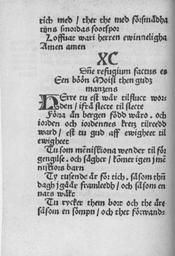 rich med / ther the med förſmådha
tijns ſmordas footſpor
Loffuat wari herren ewinneligha
Amen amen
XC
Dñe refugium factus es
Een bön Moiſi then gudz
manzens
HErre tu eſt wår tilfluct wor
den / ifrå ſlecte til ſlecte
Föra än bergen född wåro, och
iorden och iordennes kretz tilredd
ward / eſt tu gud aff ewigheet til
ewigheet
Tu ſom meniſkiona wender til för
gengilſe, och ſägher / kömer igen jme
niſkiors barn
Ty tuſende år för tich, ſåſom thñ
dagh jgåår framleedh / och ſåſom en
nars wakt
Tu rycker them bort och the äre
ſåſom en ſömpn / och ther förwand: